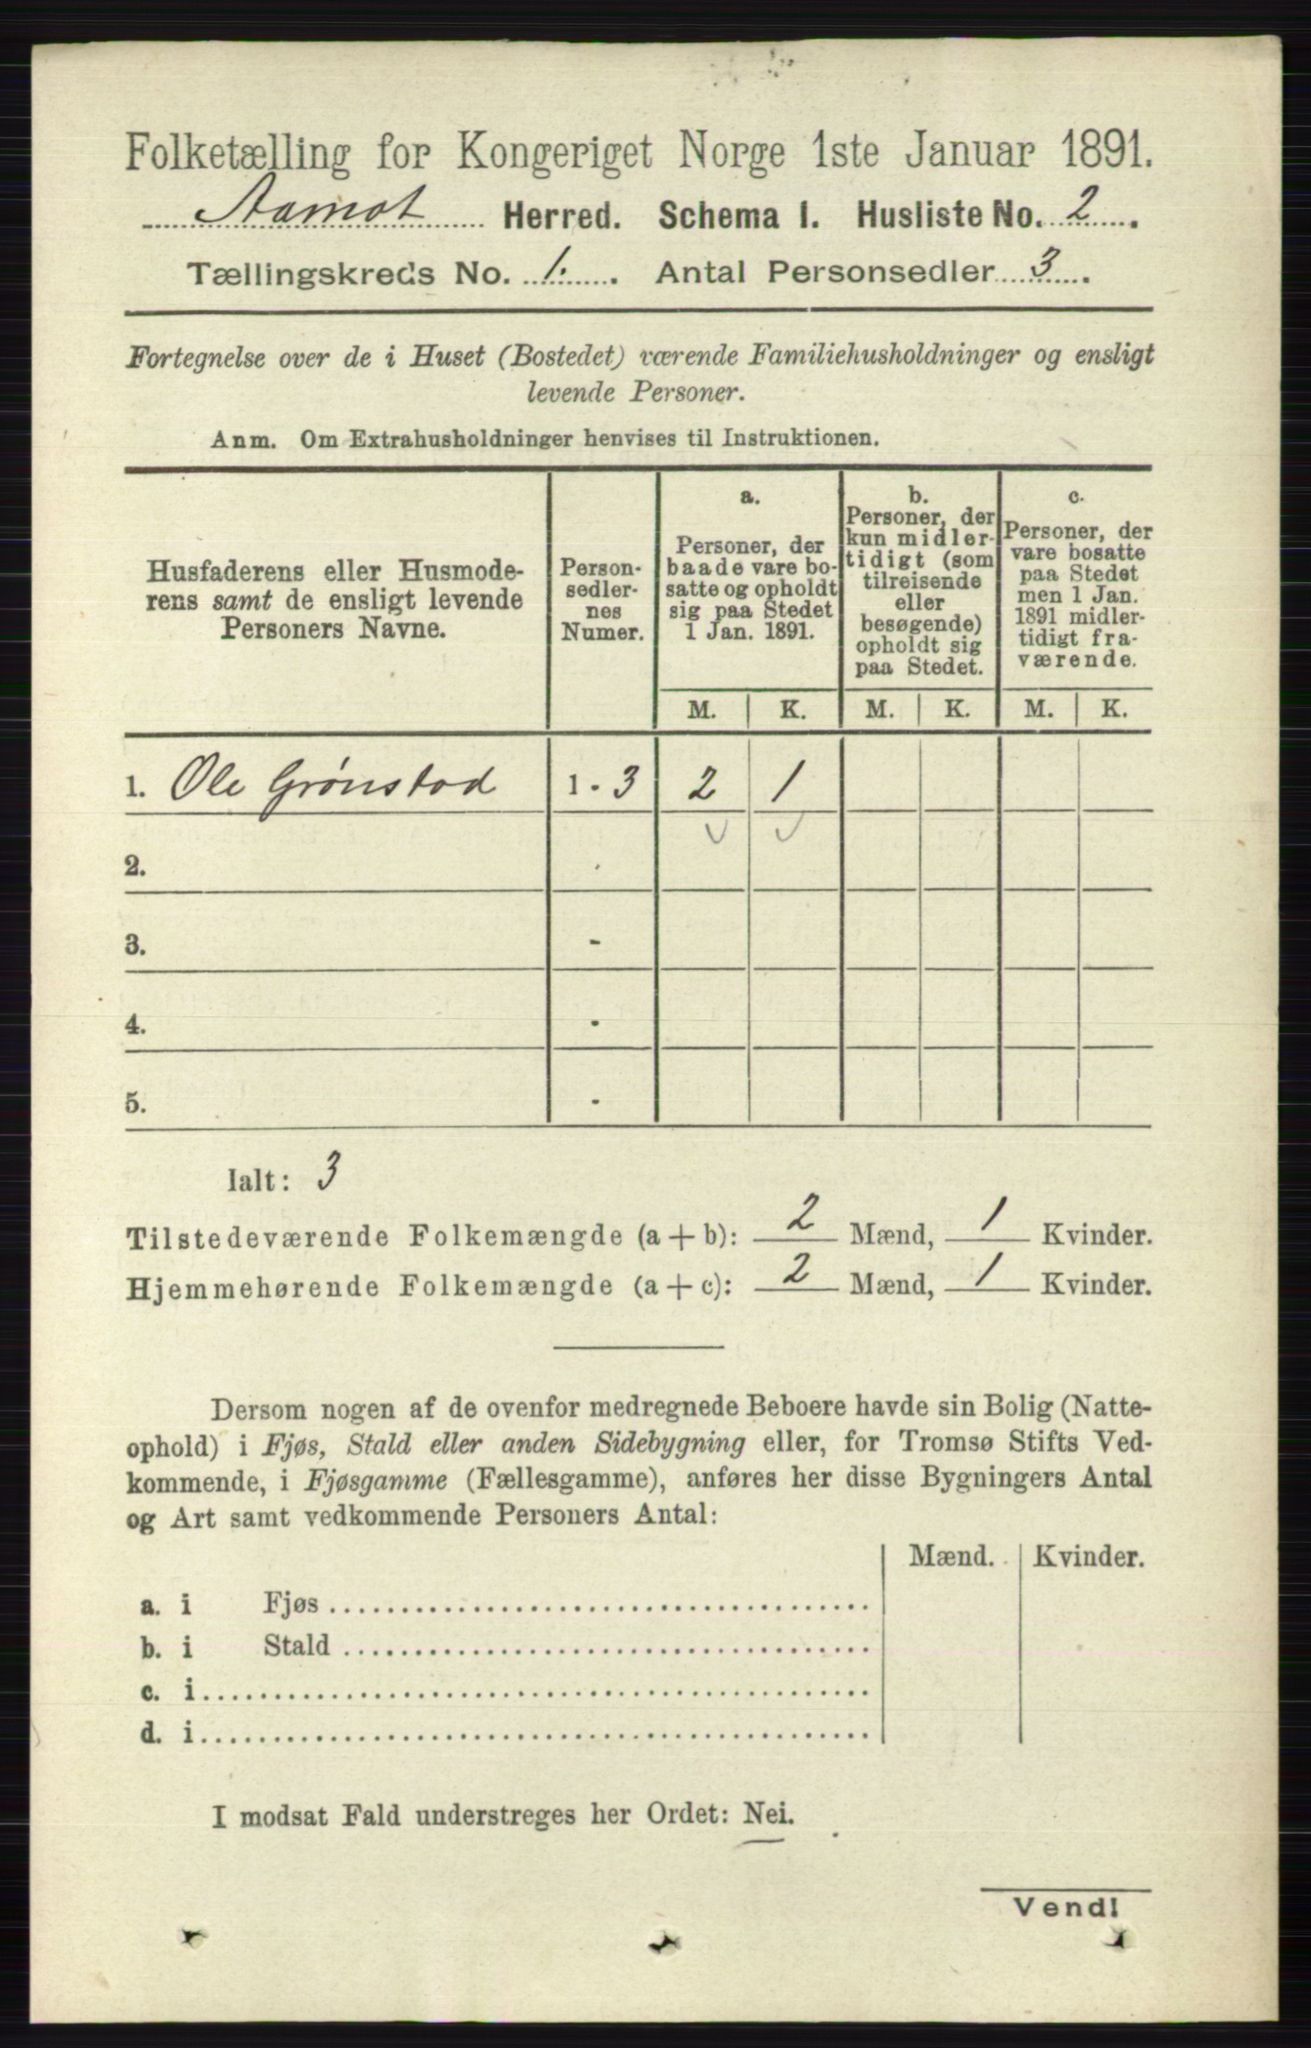 Folketælling for Kongeriget Norge 1ste Januar 1891.
Aamot Herred. Schema 1. Husliste No. 2.
Tællingskreds No. 1. Antal Personsedler 3.
Fortegnelse over de i Huset (Bostedet) værende Familiehusholdninger og ensligt
levende Personer.
Anm. Om Extrahusholdninger henvises til Instruktionen.
Husfaderens eller Husmode-
rens samt de ensligt levende
Personers Navne.
Person-
sedler-
nes
Numer.
a.
Personer, der
baade vare bo-
satte og opholdt
sig paa Stedet
1 Jan. 1891.
b.
Personer, der
kun midler-
tidigt (som
tilreisende
eller
besøgende)
opholdt sig
paa Stedet.
c.
Personer, der
vare bosatte
paa Stedet
men 1 Jan.
1891 midler-
tidigt fra-
værende.
M. K. M. K. M. K.
1. Ole Grønstad 1 - 3 2 1
2.
3. -
4. -
5. -
Ialt: 3
Tilstedeværende Folkemængde (a + b): 2 Mænd, 1 Kvinder.
Hjemmehørende Folkemængde (a + c): 2 Mænd, 1 Kvinder.
Dersom nogen af de ovenfor medregnede Beboere havde sin Bolig (Natte-
ophold) i Fjøs, Stald eller anden Sidebygning eller, for Tromsø Stifts Ved-
kommende, i Fjøsgamme (Fællesgamme), anføres her disse Bygningers Antal
og Art samt vedkommende Personers Antal:
Mænd. Kvinder.
a. i Fjøs
b. i Stald
c. i
d. i
I modsat Fald understreges her Ordet: Nei.
Vend!